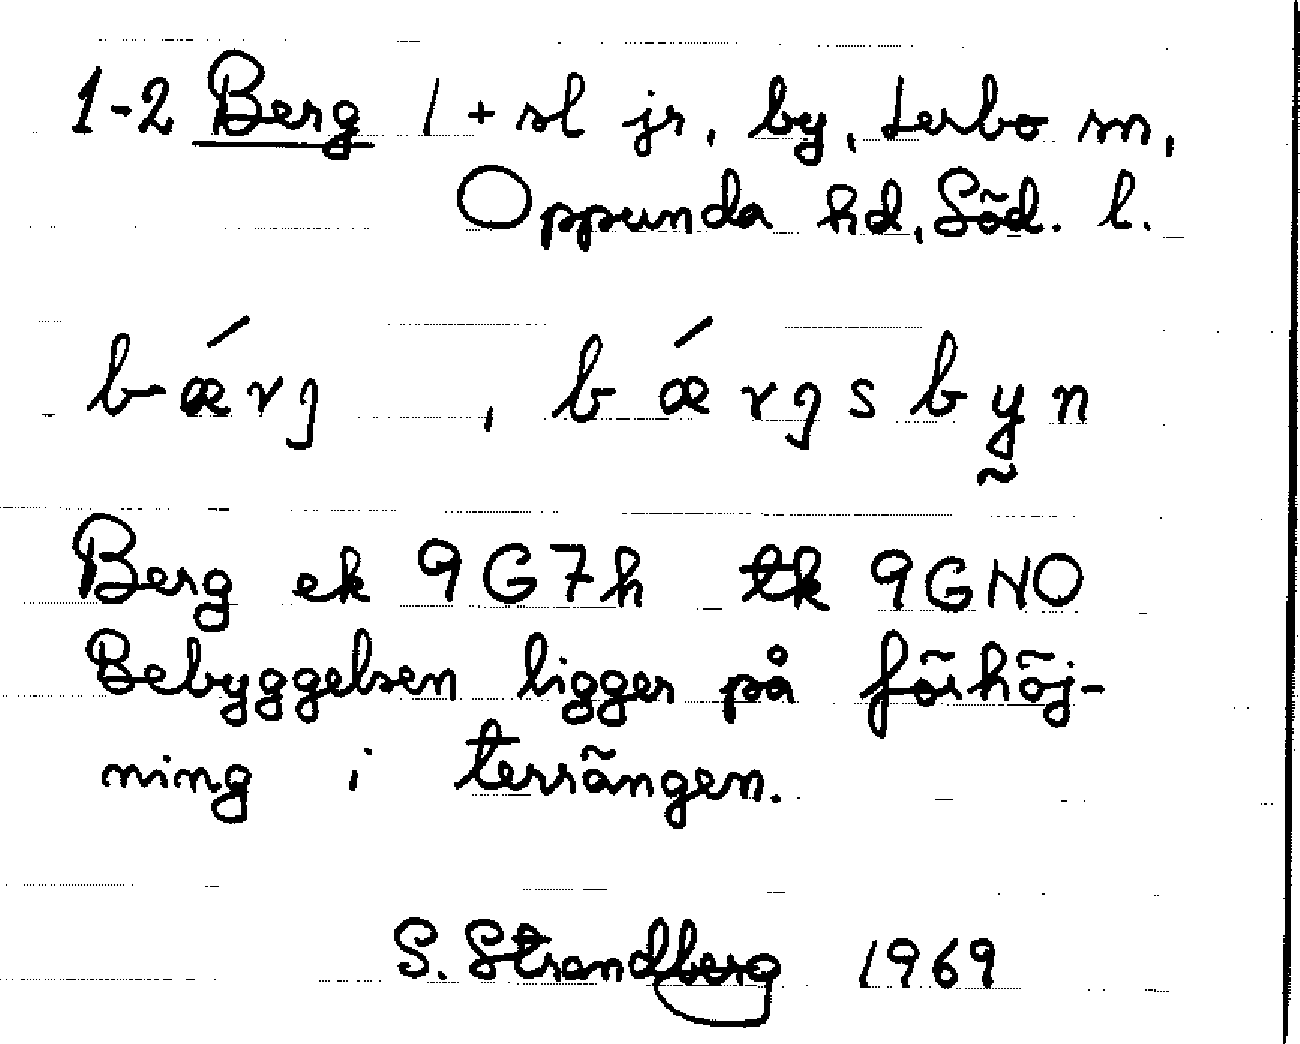 1-2 Berg 1 + sl jr, by, Lerbo sn,
Oppunda hd, Söd. l.
bǽrj , bǽrjsbyn
Berg ek 9G7h tk 9GNO
Bebyggelsen ligger på förhöj-
ning i terrängen.
S. Strandberg 1969